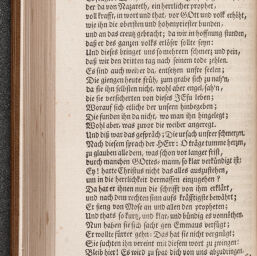 der da von Nazareth, ein herrlicher prophet,
voll krafft, in wort und that, vor GOtt und volk erhöht,
wie ihn die obersten und hohenpriester funden,
und an das creutz gebracht; da wir in hoffnung stunden,
daß er des ganzen volks erlöser sollte seyn:
Und dieses bringet uns so mehrern schmerz und pein,
daß wir den dritten tag nach seinem tode zehlen.
Es sind auch weiber da, entsetzen unsre seelen;
Die giengen heute früh, zum grabe sich zu nah'n,
da sie ihn selbsten nicht, wohl aber engel, sah'n,
die sie versicherten von dieses JEsu leben;
Worauf sich etliche der unsern hinbegeben;
Die funden ihn da nicht, wo man ihn hingelegt;
Wohl aber, was zuvor die weiber angeregt.
Und diß war das gespräch; Die ursach unsrer schmerzen.
Nach diesem sprach der HErr: O träge tumme herzen,
zu glauben alle dem, was schon vor langer frist,
durch manchen GOttes-mann, so klar verkündigt ist;
Ey! hatte Christus nicht das alles auszustehen,
um in die herrlichkeit dermassen einzugehen?
Da hat er ihnen nun die schrifft von ihm erklärt,
und nach dem rechten sinn aufs kräfftigste bewährt;
Er fieng von Mose an und allen den propheten;
Und thats so kurz, und klar, und bündig es vonnöthen.
Nun haben sie sich sacht gen Emmaus verfügt;
Er wollte fürter gehn: Das hat sie nicht vergnügt;
Sie suchten ihn vereint mit diesem wort zu zwingen:
Bleib hier! Es wird zu spat dich von uns abzudringen.